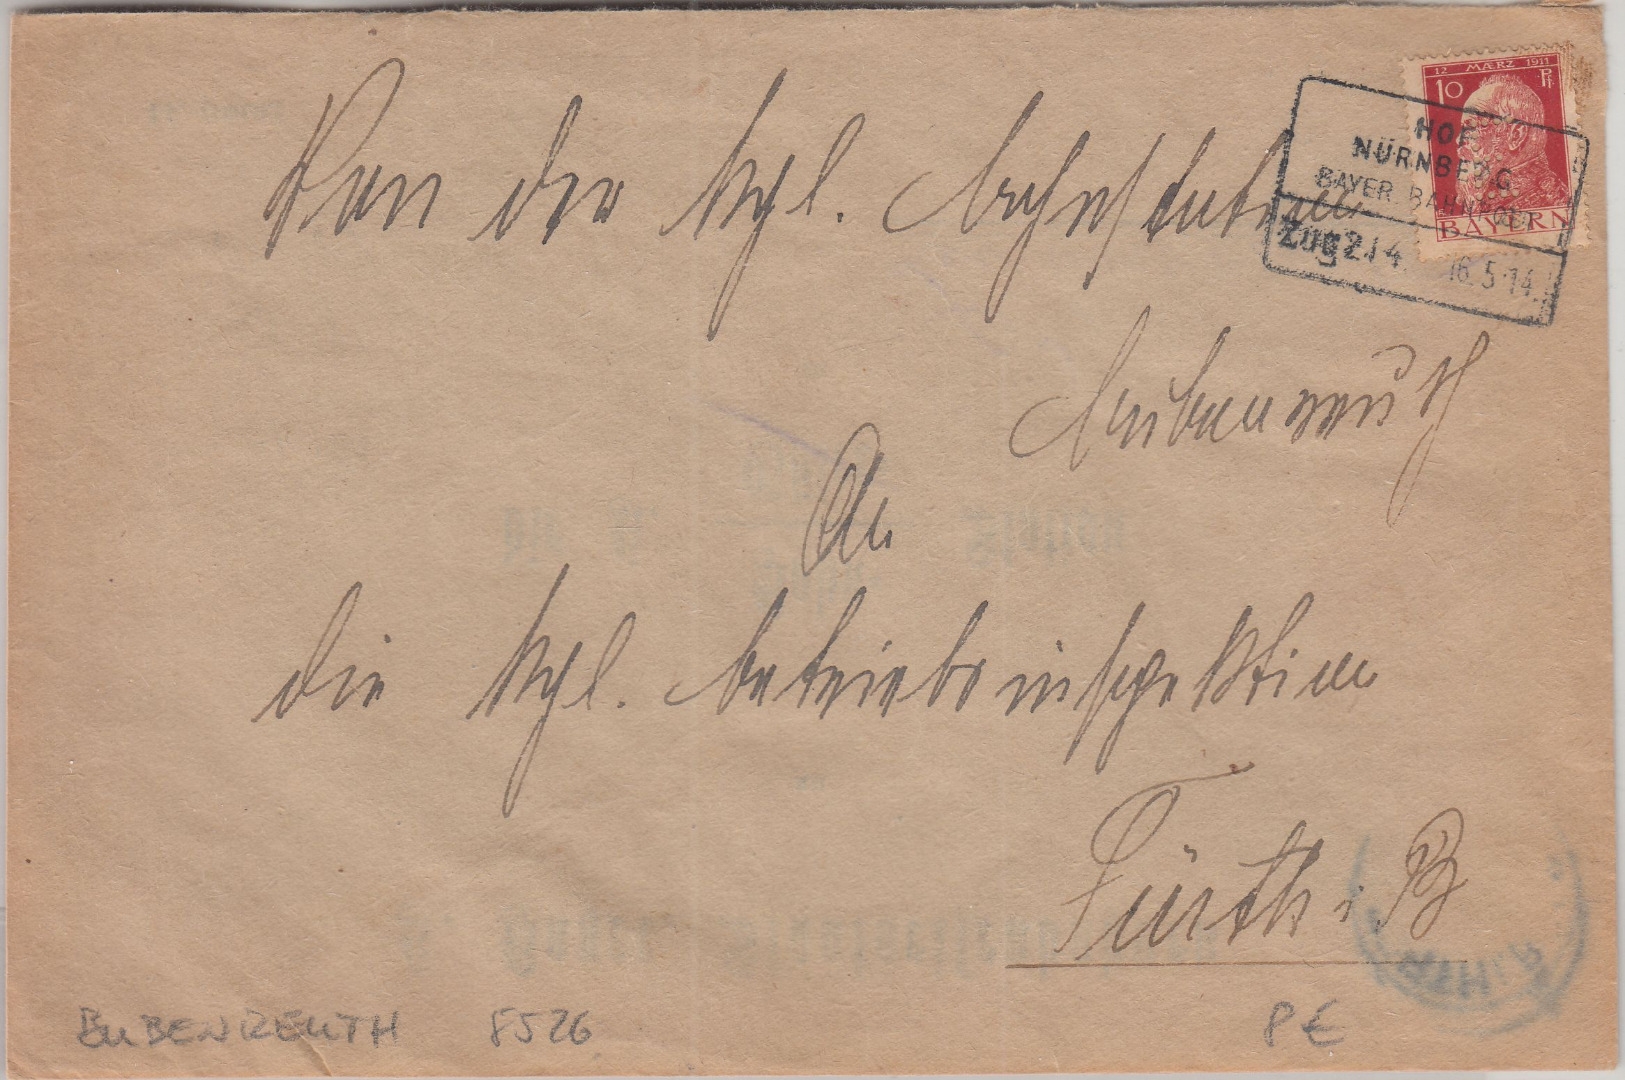 12 MÆRZ 1911
10 Pf
BAYERN
HOF
NÜRNBERG
BAYER. BAHNPOST
Zug 214. 16.5.14.
Von der Kgl. Bahnstation
Bubenreuth
An
die Kgl. Betriebsinspektion
Fürth i B
BUBENREUTH 8526 8 €